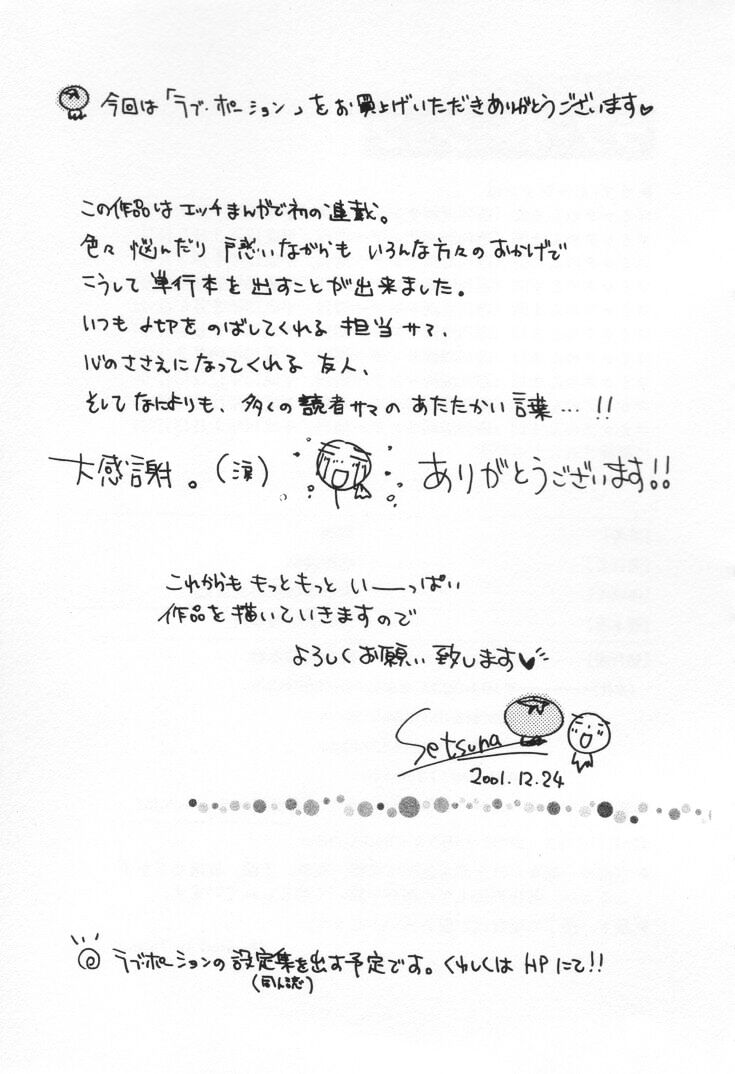 今回は「ラブ・ポーション」をお買上げいただきありがとうございます♥
この作品はエッチまんがで初の連載。
色々 悩んだり 戸惑いながらも いろんな方々のおかげで
こうして 単行本を 出すことが出来ました。
いつも 〆切を のばしてくれる 担当サマ、
心のささえになってくれる 友人、
そしてなによりも、多くの読者サマの あたたかい言葉…!!
大感謝。(涙) ありがとうございます!!
これからも もっともっと いーーっぱい
作品を描いていきますので
よろしくお願い致します♥
Setsuna
2001.12.24
ラブ・ポーションの設定集を出す予定です。くわしくは HPにて!!
(同人誌)